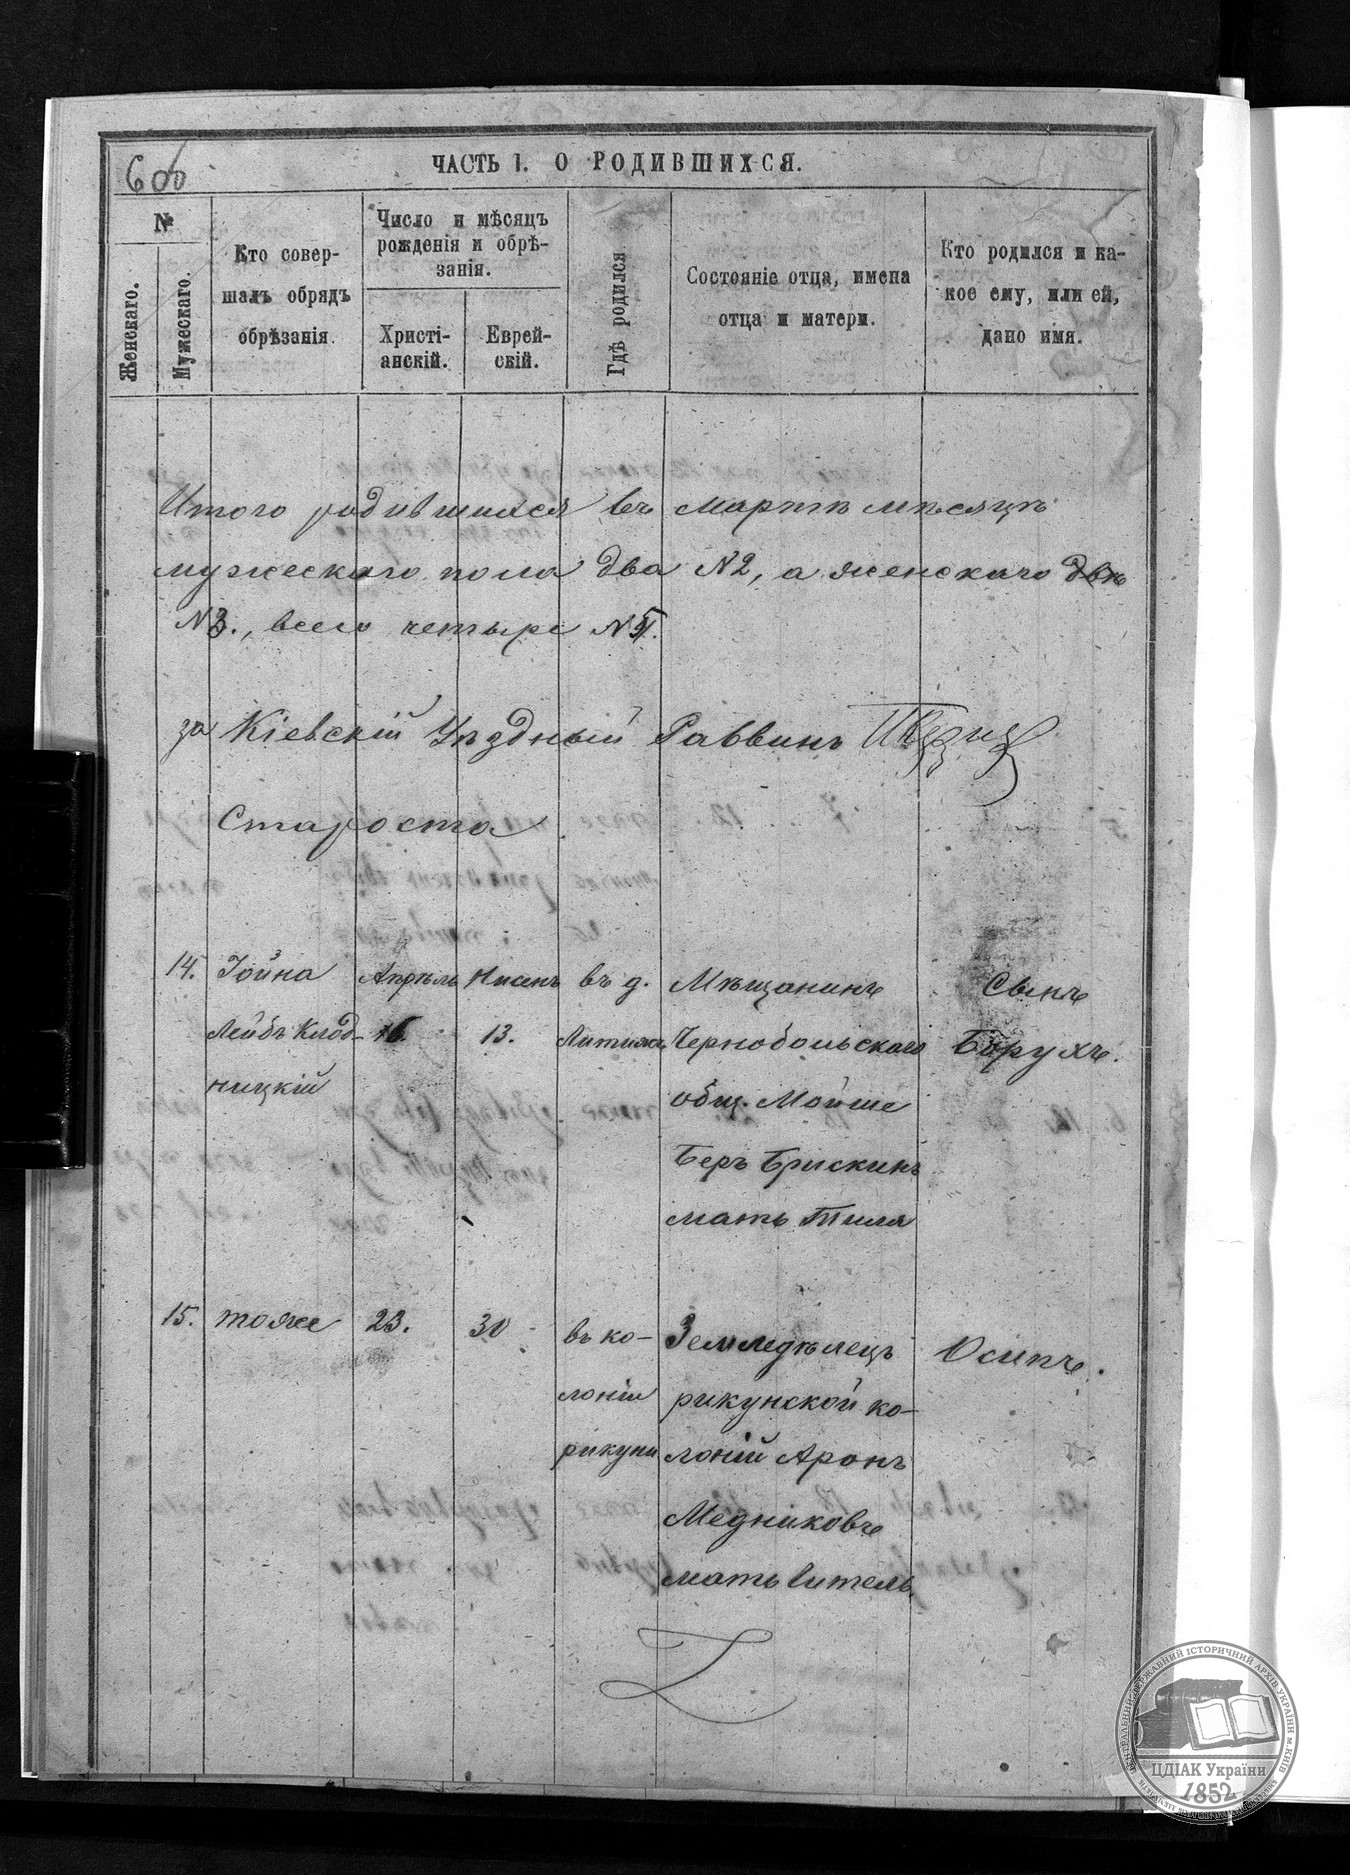 606
ЧАСТЬ I. О РОДИВШИХСЯ.
№
Женскаго.
Мужескаго.
Кто совер-
шалъ обрядъ
обрѣзанія.
Число и мѣсяцъ
рожденія и обрѣ-
занія.
Христі-
анскій.
Еврей-
скій.
Гдѣ родился
Состояніе отца, имена
отца и матери.
Кто родился и ка-
кое ему, или ей,
дано имя.
Итого родившихся въ мартѣ мѣсяцѣ
мужескаго пола два №2, а женскаго двѣ
№3., всего четыре №5.
за Кіевскій Уѣздный Раввинъ
Староста
14.
Іойна
Лейбъ Клод-
ницкій
Апрѣль
16.
Нисенъ
13.
въ д.
Мѣщанинъ
Чернобольскаго
общ. Мойше
Беръ Брискинъ
мать Тиля
Сынъ
Борухъ.
15.
тоже
23.
30
въ ко-
лоніи
рикуни
Земледѣлецъ
рикунской ко-
лоніи Аронъ
Медниковъ
мать витель.
Осипъ.
ЦЕНТРАЛЬНИЙ ДЕРЖАВНИЙ ІСТОРИЧНИЙ АРХІВ УКРАЇНИ м.КИЇВ
ЦДІАК України
1852